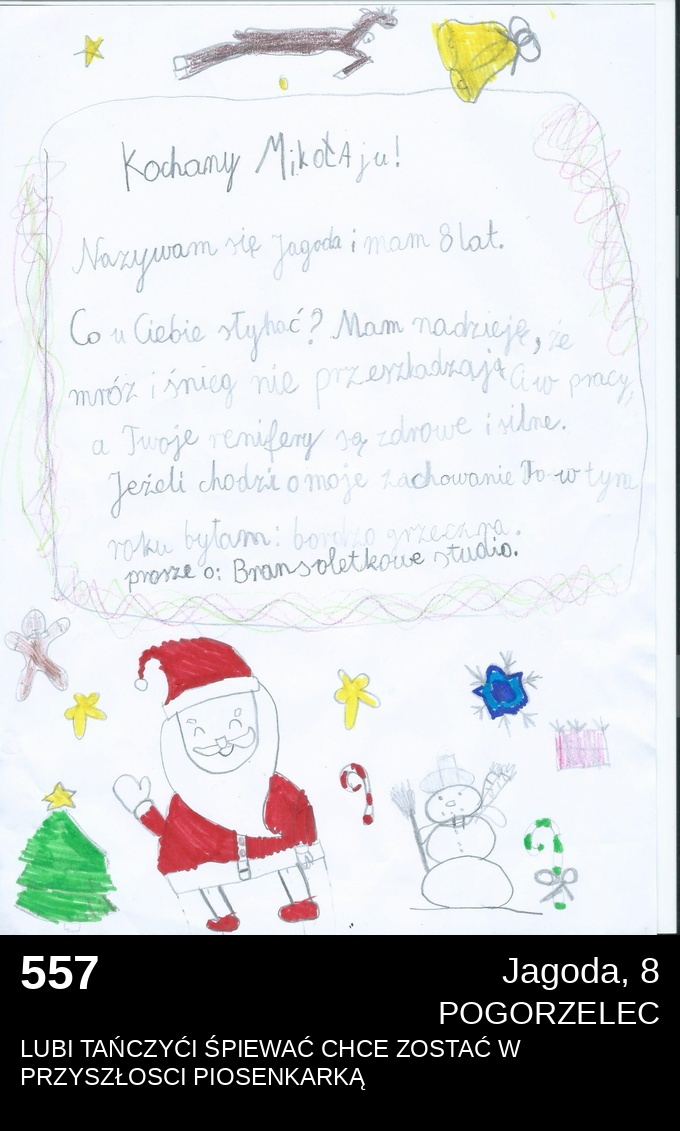 Kochany MikołAju!
Nazywam się Jagoda i mam 8 lat.
Co u Ciebie słyhać? Mam nadzieję, że
mróz i śnieg nie przeszkadzają Ci w pracy,
a Twoje renifery są zdrowe i silne.
Jeżeli chodzi o moje zachowanie To w tym
roku byłam: bardzo grzeczna.
prosze o: Bransoletkowe studio.
557
Jagoda, 8
POGORZELEC
LUBI TAŃCZYĆI ŚPIEWAĆ CHCE ZOSTAĆ W
PRZYSZŁOSCI PIOSENKARKĄ